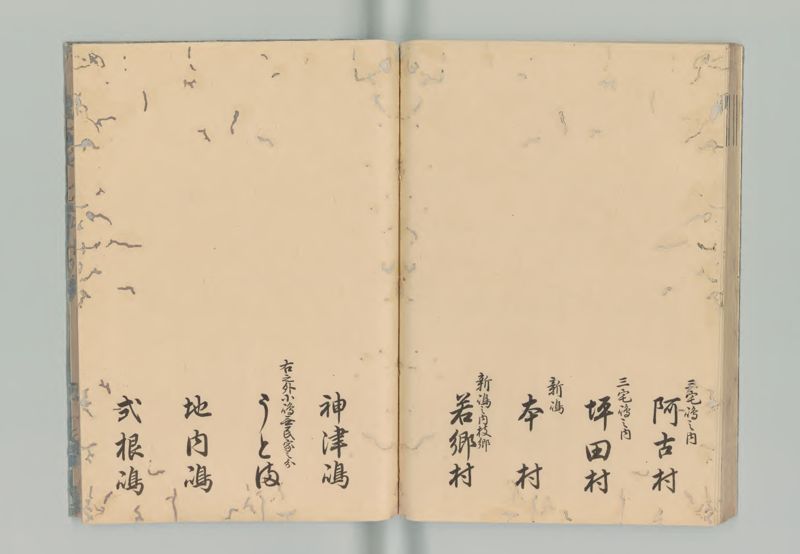 三宅嶋之内
阿古村
三宅嶋之内
坪田村
新嶋
本村
新嶋之内枝郷
若郷村
神津嶋
右之外小嶋無民家分
うとま
地内嶋
弐根嶋